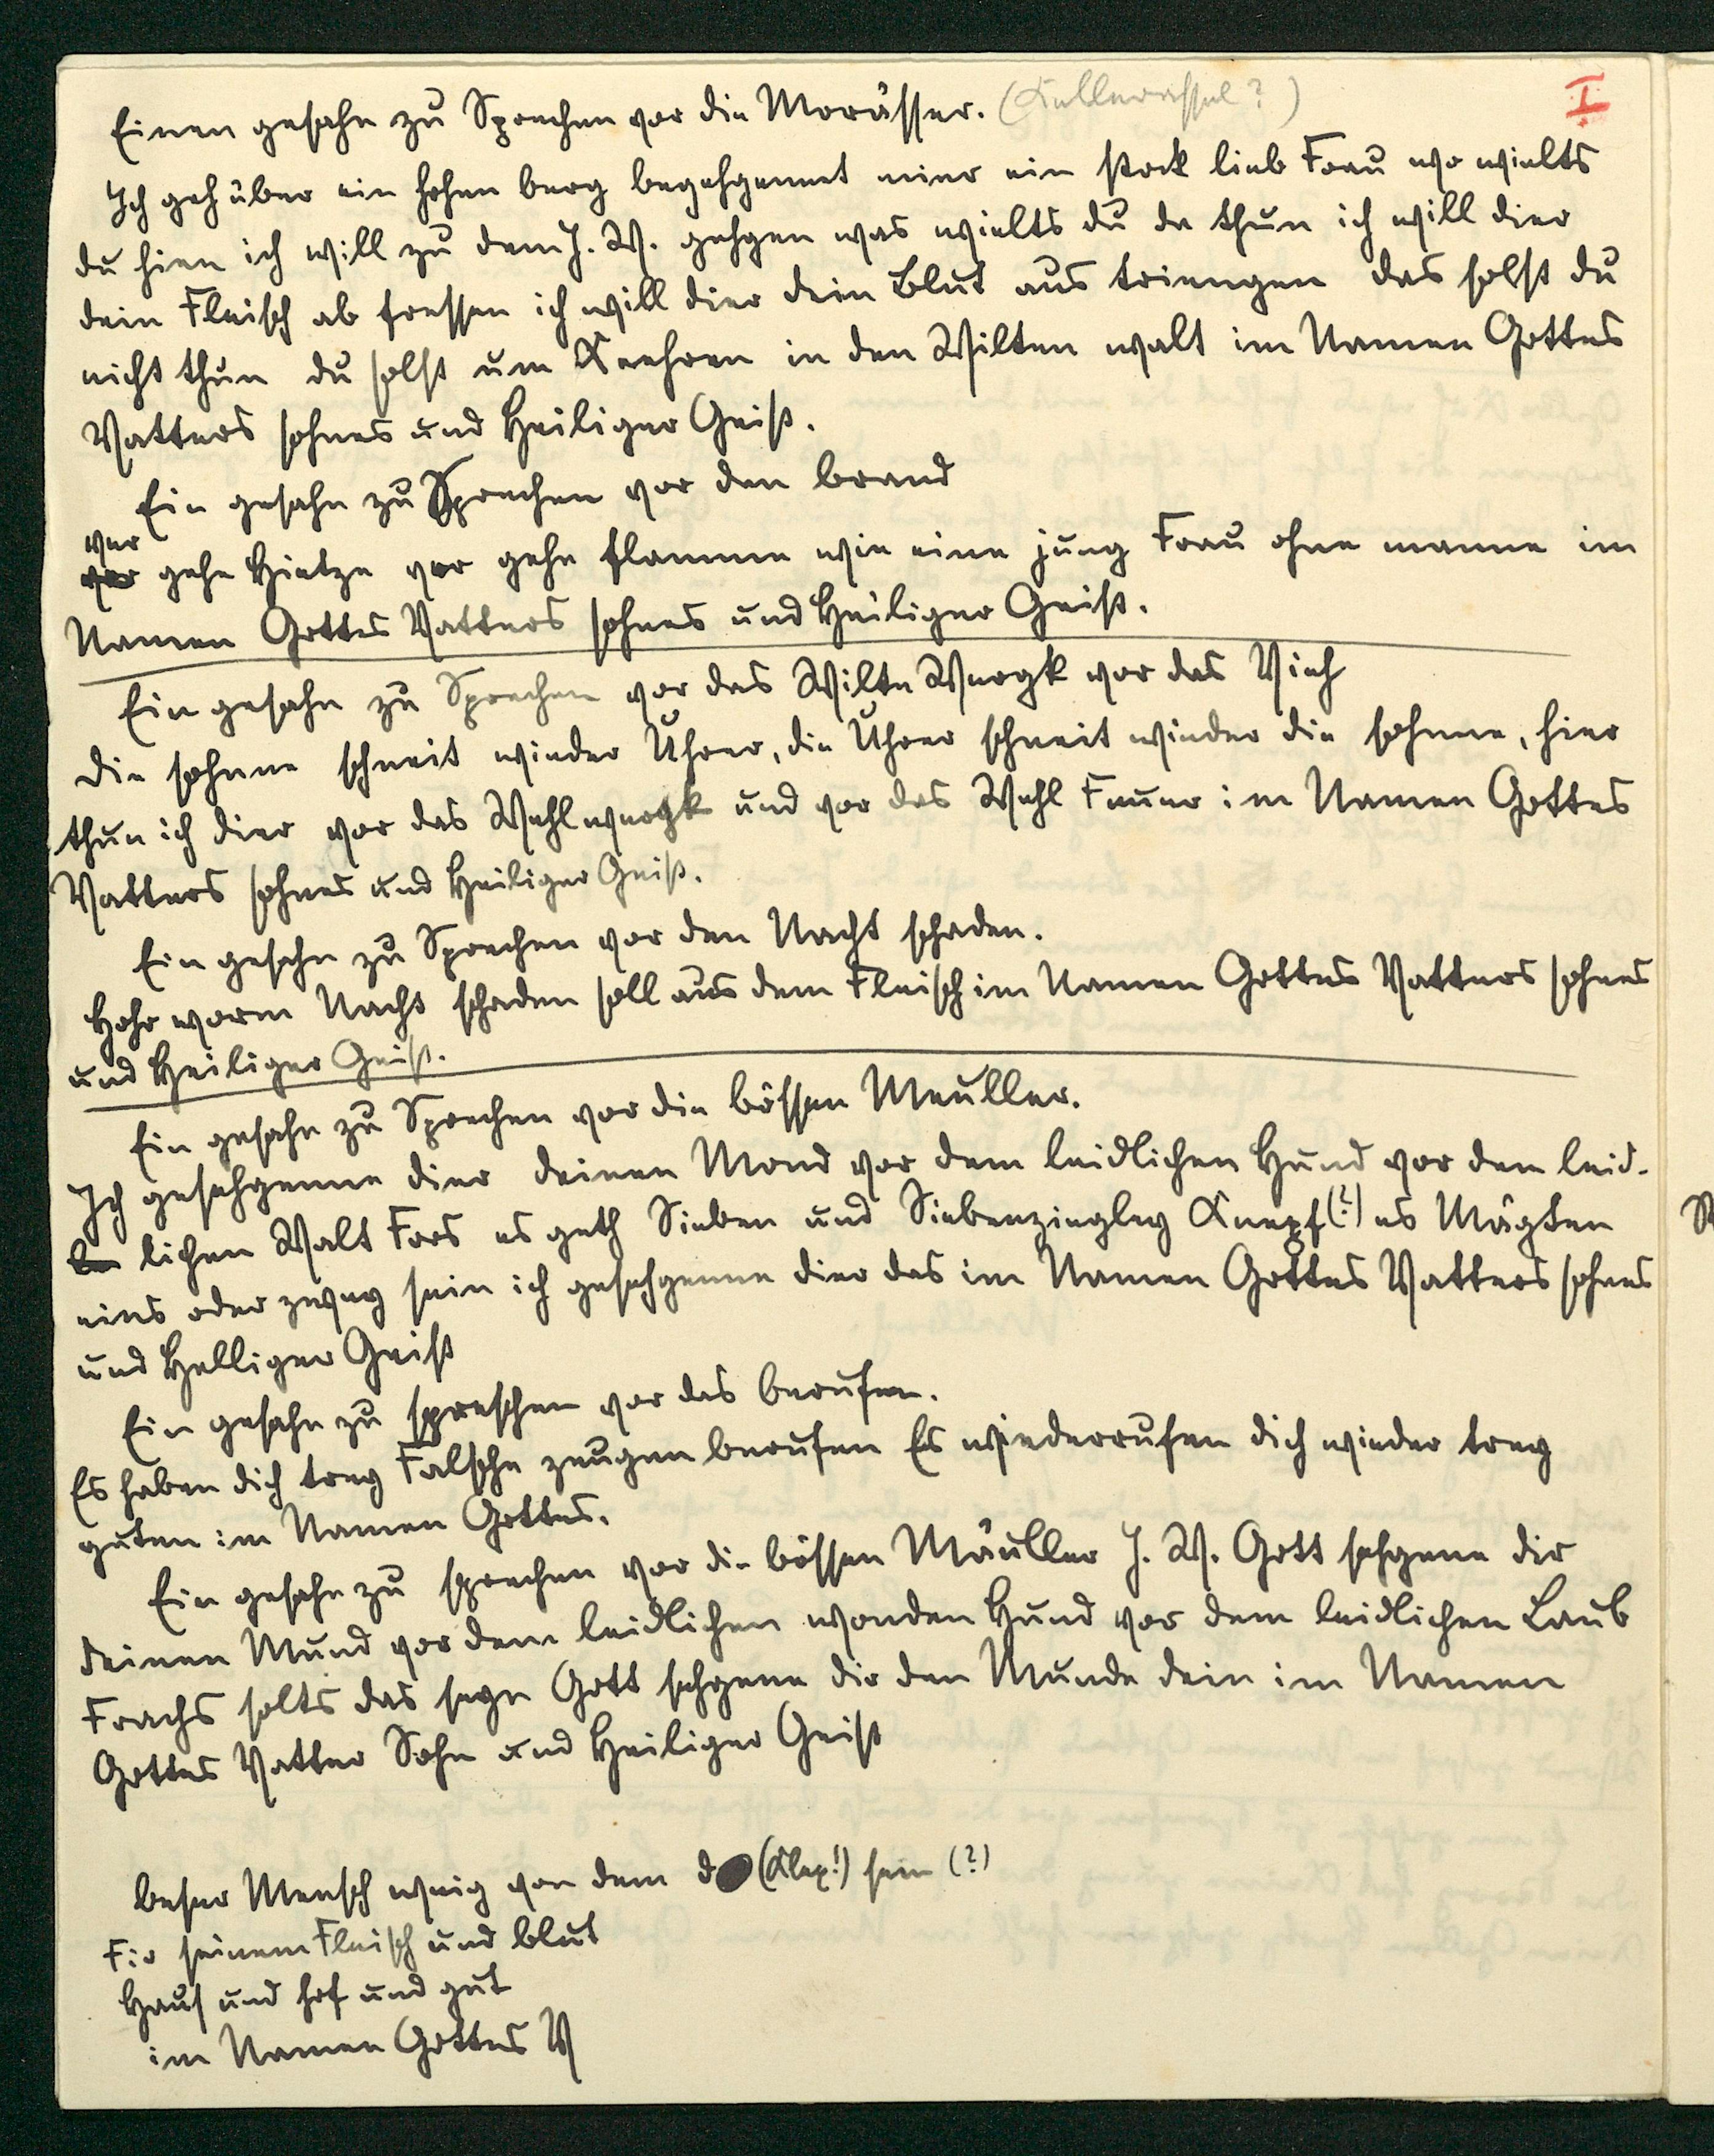 Einen gesahn zu Sprechen vor die Morässer. (Kellerassel?)
I
Ich geh über ein hohen berg begehgennet mier ein stock lieb Frau wo wielts
du hien ich will zu dem J. W. gehgen was wielts du da thun ich will dier
dein Fleisch ab fressen ich will dier dein Blut aus triengen das solst du
nicht thun du solst um Keehren in den Wilten walt im Namen Gottes
Vatters sohnes und Heiliger Geist.
Ein gesahn zu Sprechen vor den brand
ver
vor gehe Hietze ver gehe flamme wie eine jung Frau ohne manne im
Namen Gottes Vatters sohnes und Heiliger Geist.
Ein gesahn zu Sprechen vor das Wilte Wergk vor das Vieh
die sohnne schneit wieder Uhrer, die Uhrer schneit wieder die sohnne, hier
thun ich dier vor das Wehlwergk und vor das Wehl Feuer im Namen Gottes
Vatters sohnes und Heiliger Geist.
Ein gesehn zu Sprechen vor den Nacht schaden.
Hohr worm Nacht schaden soll aus dem Fleisch im Namen Gottes Vatters sohnes
und Heiliger Geist.
Ein gesahn zu Sprechen vor die bössen Meuller.
Ich gesehgenne dier deinen Mond vor dem leidlichen Hund vor dem leid-
lichen Walt Fors es geth Sieben und Siebenziegley Knepf(?) es Mägten
eins oder zwey sein ich gesehgenne dier das im Namen Gottes Vatters sohnes
und Helliger Geist
Ein gesahn zu spreschen vor das berufen.
Es haben dich trey Falsche zeugen berufen Es wiederrufen dich wieder trey
guten im Namen Gottes.
Ein gesahn zu sprechen vor die bössen Mäuller J. W. Gott sehgene dir
deinen Mund vor dem leidlichen wonden Hund vor dem leidlichen Laub
Frachs solts das segn Gott sehgene dir den Munde dein im Namen
Gottes Vatter Sohn und Heiliger Geist
beser Mensch weig von dem d (Klex!) sein (?)
Fir seinem Fleisch und blut
Haus und hof und gut
im Namen Gottes V